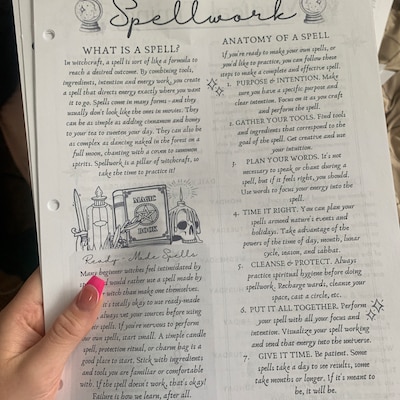 Spellwork
WHAT IS A SPELL?
In witchcraft, a spell is sort of like a formula to
reach a desired outcome. By combining tools,
ingredients, intention and energy work, you create
a spell that directs energy exactly where you want
it to go. Spells come in many forms - and they
usually don't look like the ones in movies. They
can be as simple as adding cinnamon and honey
to your tea to sweeten your day. They can also be
as complex as dancing naked in the forest on a
full moon, chanting with a coven to summon
spirits. Spellwork is a pillar of witchcraft, so
take the time to practice it!
MAGIC
BOOK
Ready-Made Spells
Many beginner witches feel intimidated by
would rather use a spell made by
witch than make one themselves.
it's totally okay to use ready-made
always vet your sources before using
other spells. If you're nervous to perform
your own spells, start small. A simple candle
spell, protection ritual, or charm bag is a
good place to start. Stick with ingredients
and tools you are familiar or comfortable
with. If the spell doesn't work, that's okay!
Failure is how we learn, after all.
ANATOMY OF A SPELL
If you're ready to make your own spells, or
you'd like to practice, you can follow these
steps to make a complete and effective spell.
1. PURPOSE & INTENTION. Make
sure you have a specific purpose and
clear intention. Focus on it as you craft
and perform the spell.
2. GATHER YOUR TOOLS. Find tools
and ingredients that correspond to the
goal of the spell. Get creative and use
your intuition.
3. PLAN YOUR WORDS. It's not
necessary to speak or chant during a
spell, but if it feels right, you should.
Use words to focus your energy into the
spell.
4. TIME IT RIGHT. You can plan your
spells around nature's events and
holidays. Take advantage of the
powers of the time of day, month, lunar
cycle, season, and sabbat.
5. CLEANSE & PROTECT. Always
practice spiritual hygiene before doing
spellwork. Recharge wards, cleanse your
space, cast a circle, etc.
6. PUT IT ALL TOGETHER. Perform
your spell with all your focus and
intention. Visualize your spell working
and send that energy into the universe.
7. GIVE IT TIME. Be patient. Some
spells take a day to see results, some
take months or longer. If it's meant to
be, it will be.